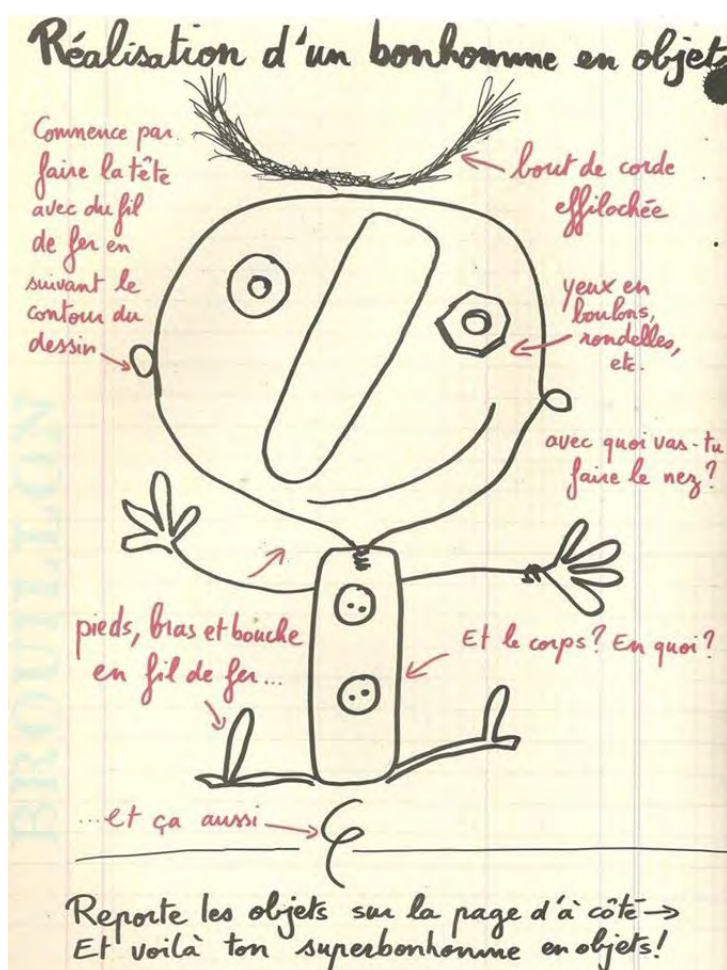 Réalisation d'un bonhomme en objet
Commence par
faire la tête
avec du fil
de fer en
suivant le
contour du
dessin
bout de corde
effilochée
yeux en
boulons,
rondelles,
etc.
avec quoi vas-tu
faire le nez?
pieds, bras et bouche
en fil de fer...
Et le corps? En quoi?
...et ça aussi
BROUILLON
Reporte les objets sur la page d'à côté →
Et voilà ton superbonhomme en objets!